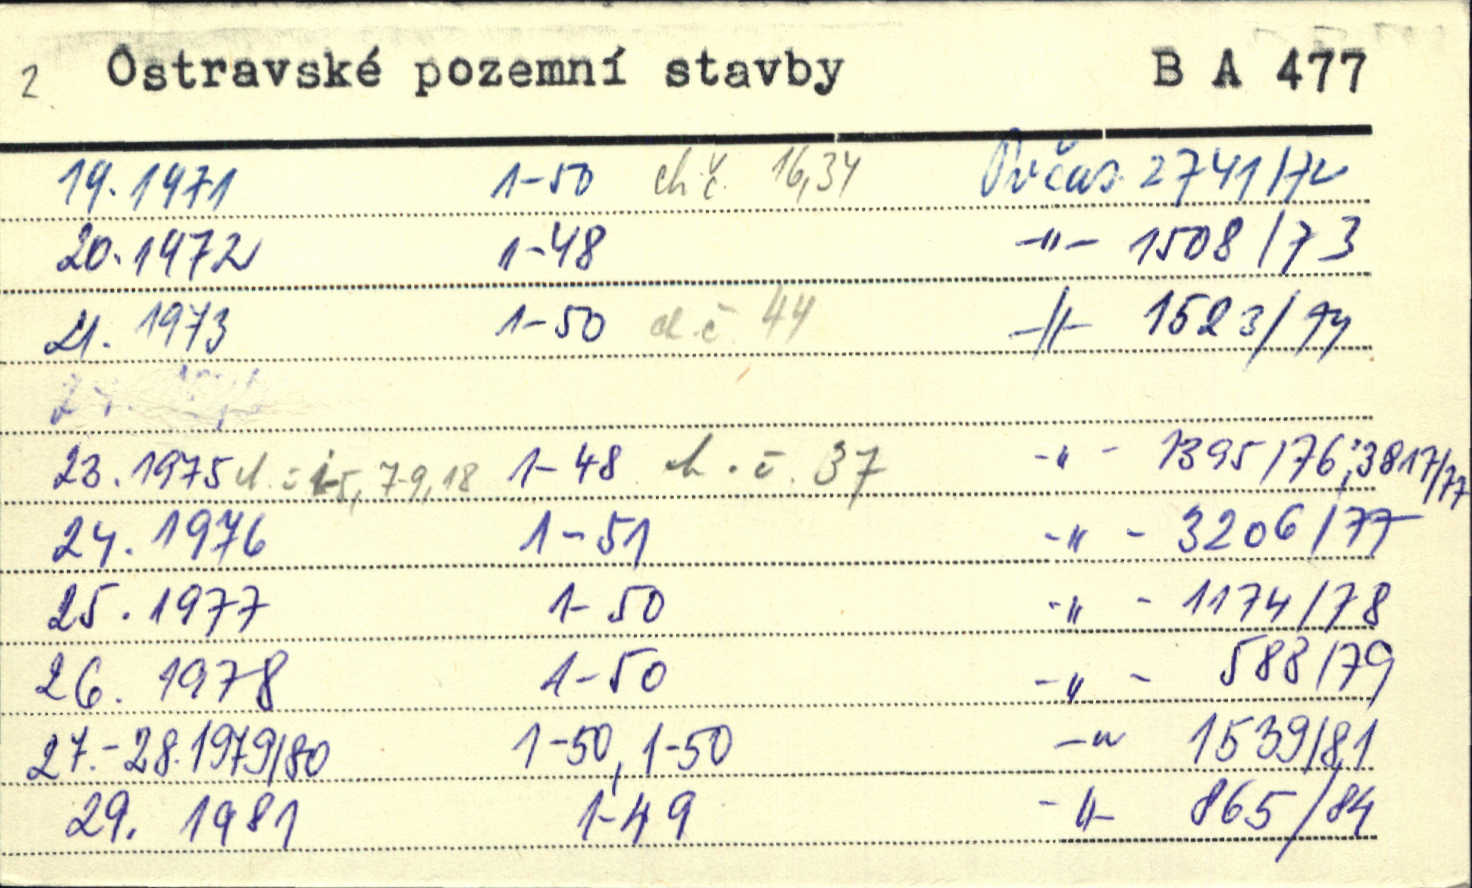 2 Ostravské pozemní stavby B A 477
19. 1971 1-50 ch.č. 16,34 Př.čas. 2741/72
20. 1972 1-48 -"- 1508/73
21. 1973 1-50 ch.č. 44 -"- 1523/74
23. 1975 ch.č. 1-5, 7-9, 18 1-48 ch.č. 37 -"- 1395/76; 3817/77
24. 1976 1-51 -"- 3206/77
25. 1977 1-50 -"- 1174/78
26. 1978 1-50 -"- 588/79
27.-28. 1979/80 1-50, 1-50 -"- 1539/81
29. 1981 1-49 -"- 865/84